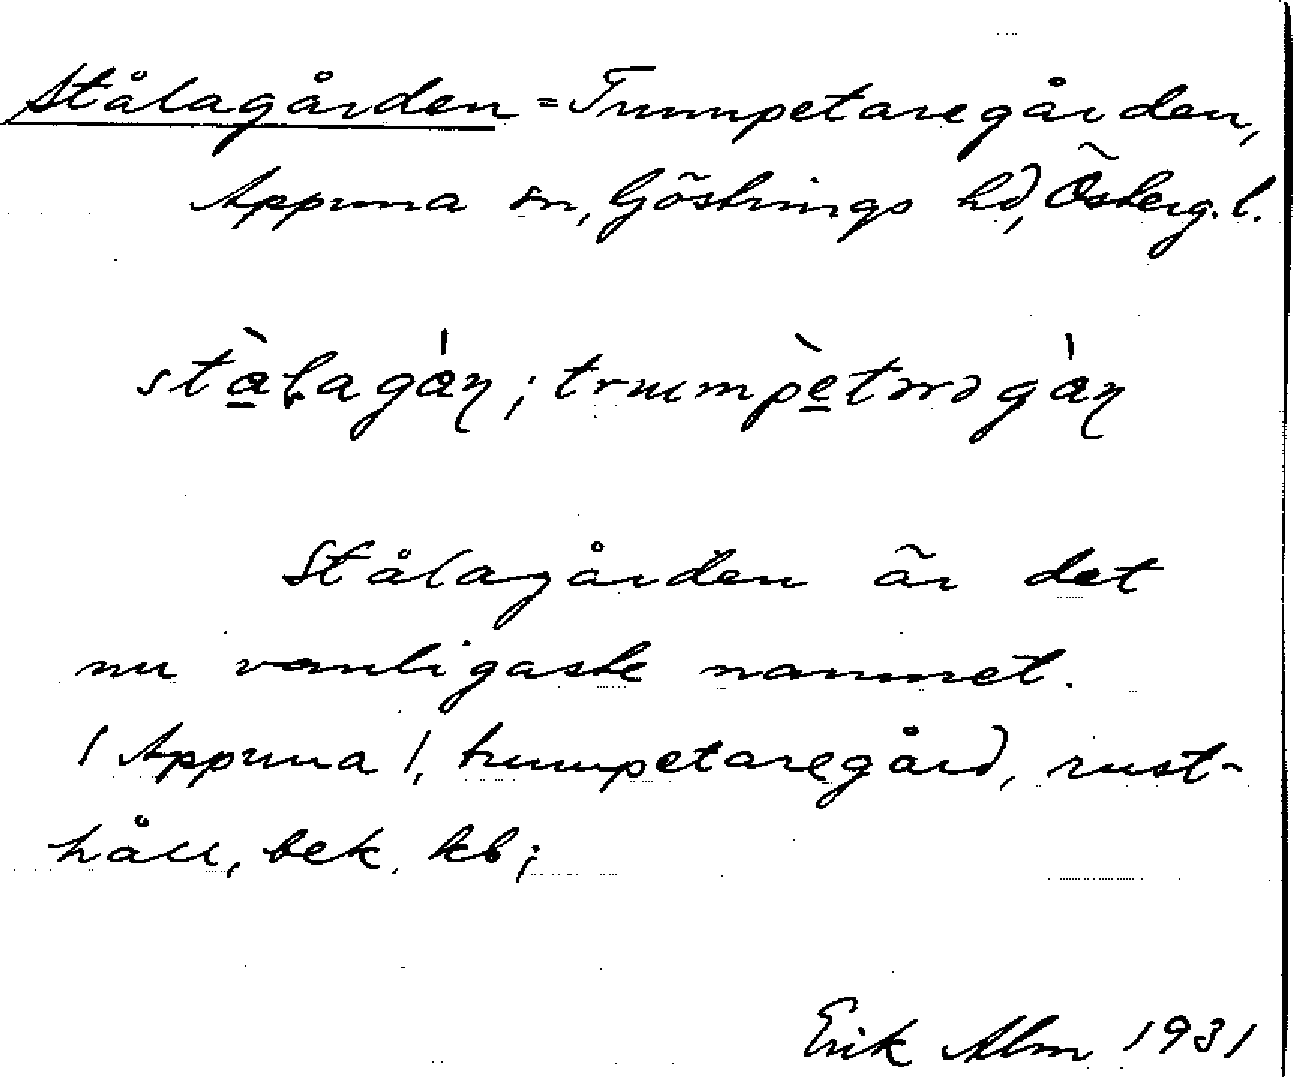 Stålagården = Trumpetaregården,
Appuna sn, Göstrings hd, Österg. l.
stàlagáɳ; trumpètarəgàɳ
Stålagården är det
nu vanligaste namnet.
(Appuna), trumpetaregård, rust-
håll, bek. kb;
Erik Alm 1931